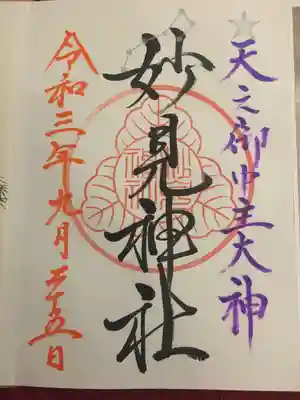 天之御中主大神
妙見神社
令和三年九月二十五日